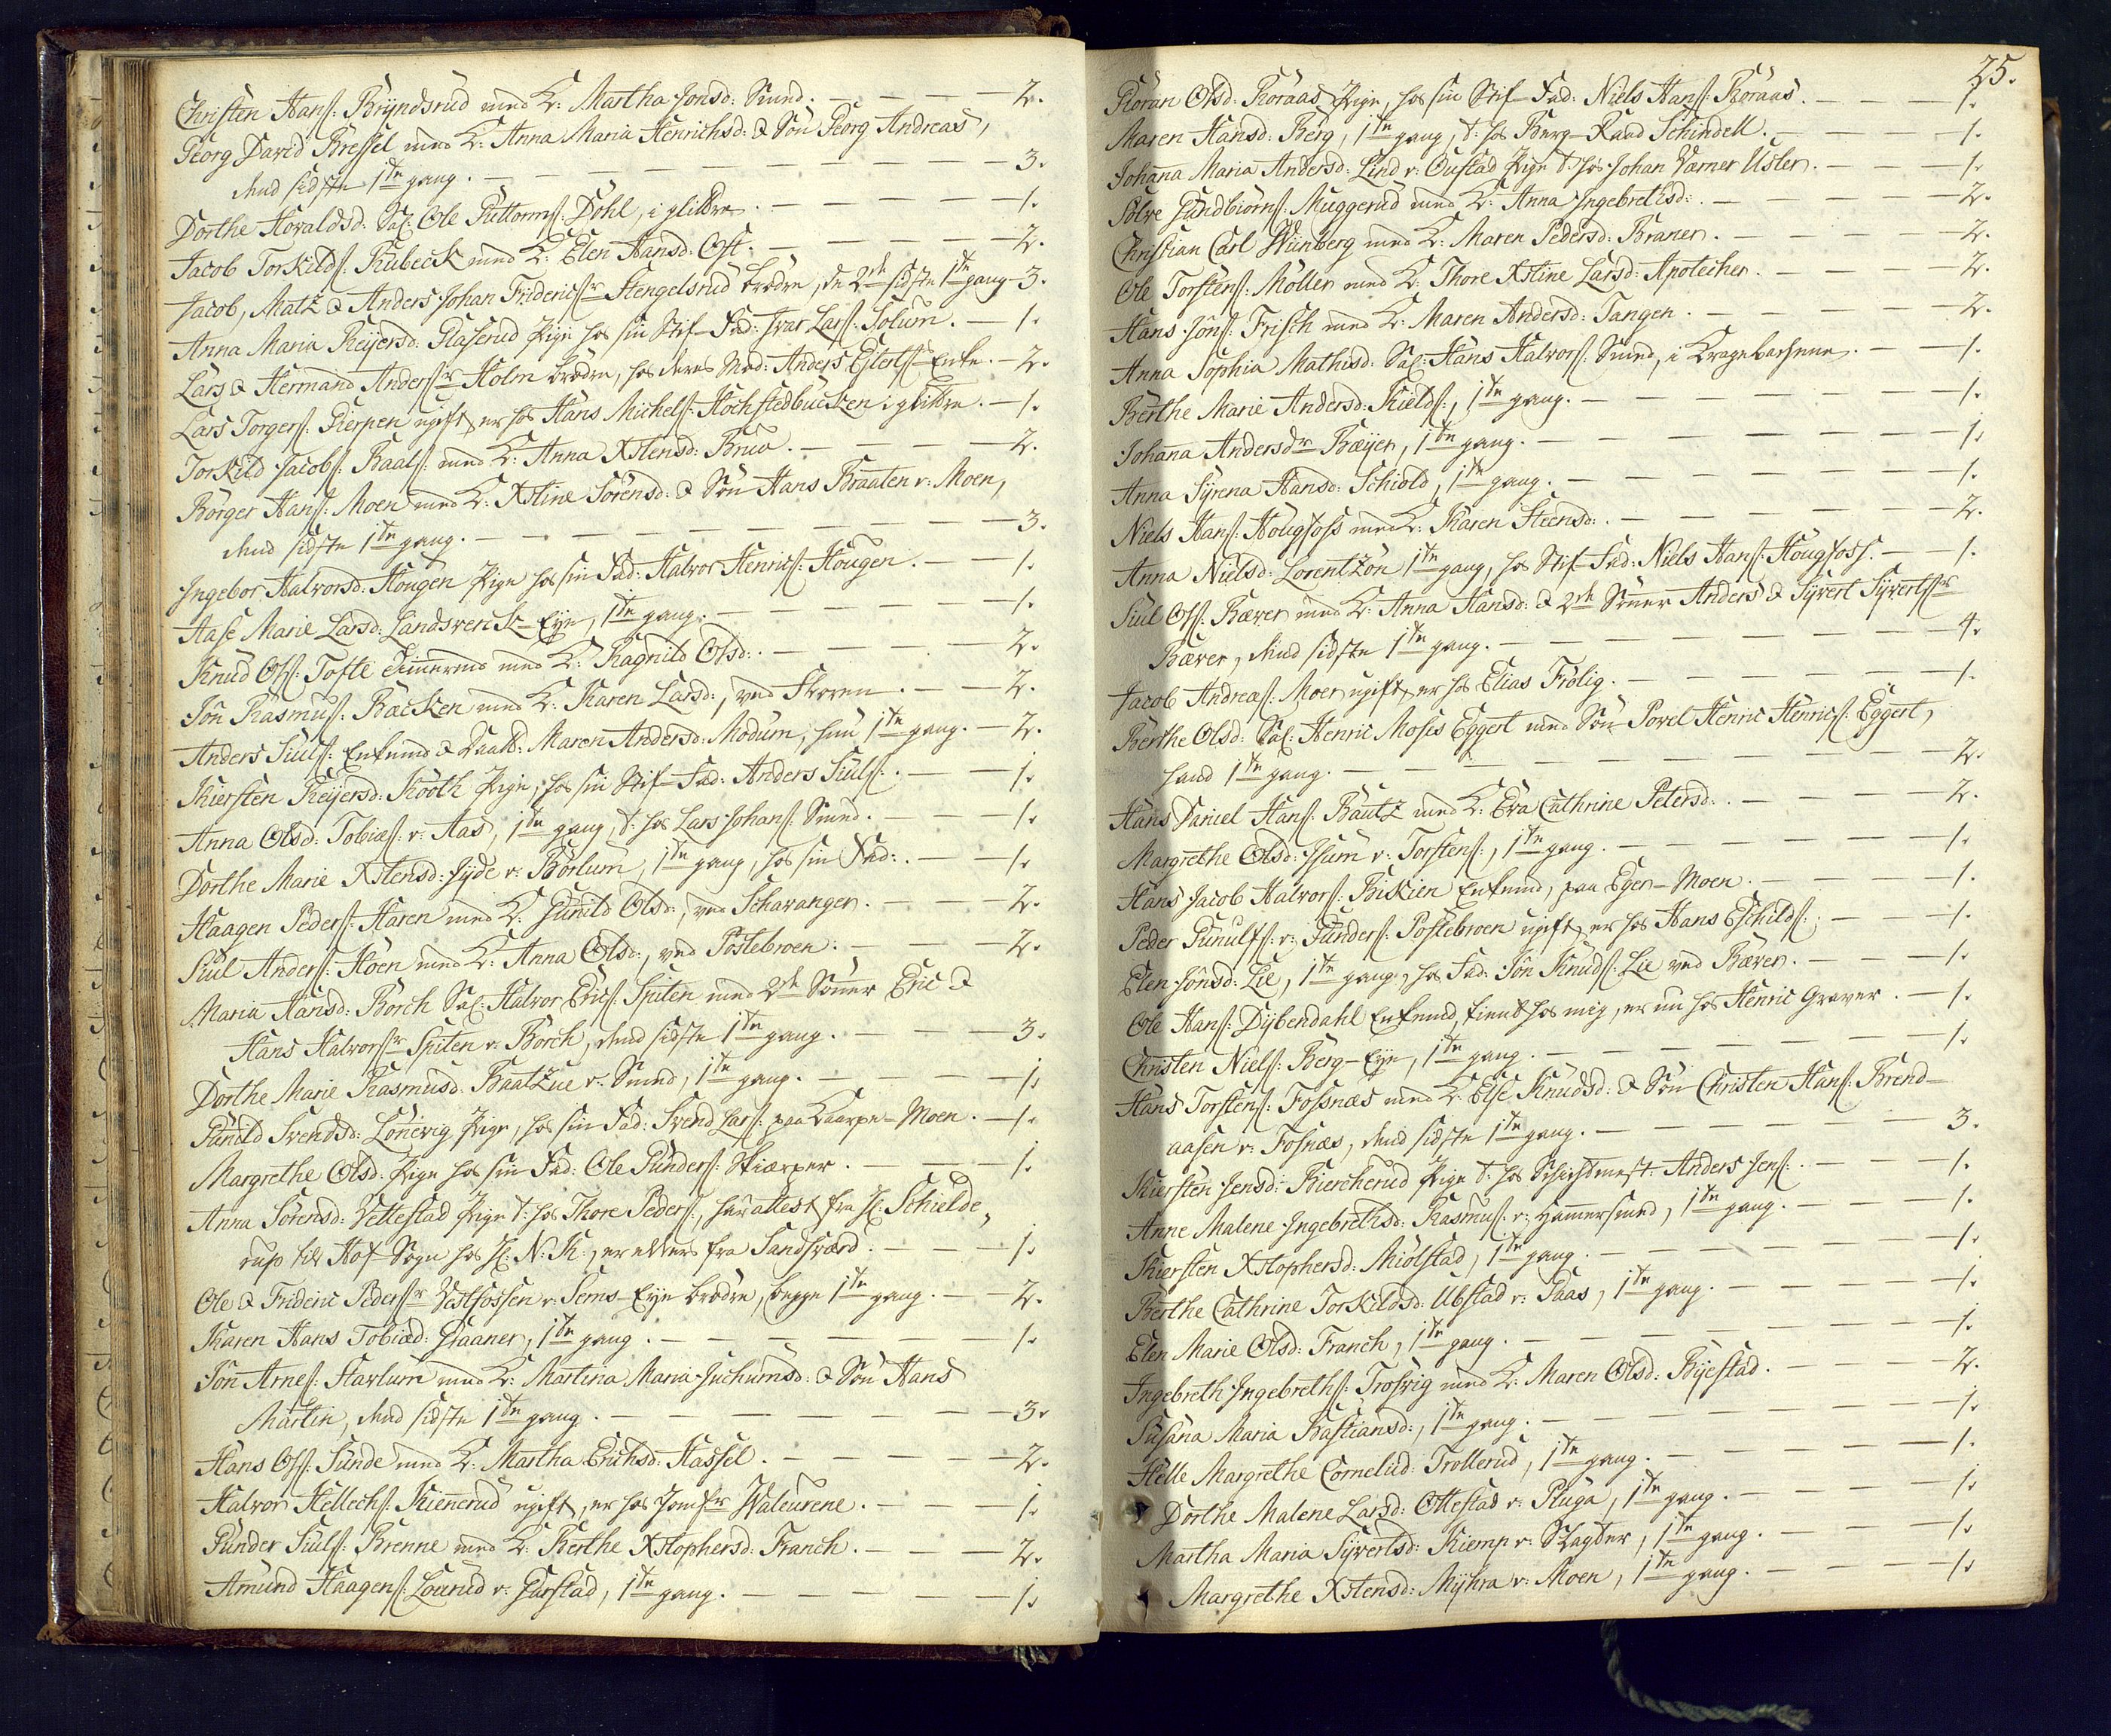 Christen Hans: Bryndsrud med K: Martha Jonsd: Smed. — 2.
Georg David Bressel med K: Anna Maria Henrichsd: & Søn Georg Andreas,
denne sidste 1te gang. — 3.
Dorthe Hovaldsd: Sal: Ole Guttorms: Dohl, i glittre. — 1.
Jacob Torkilds: Rubeck med K: Elen Hansd: Ost. — 2.
Jacob, Matz & Anders Johan Fridericsr Stengelsrud brødre, de 2de sidste 1te gang — 3.
Anna Maria Reyersd: Glaserud Pige hos sin Stif-Fad: Ivar Lars: Solum. — 1.
Lars & Hermand Andersr Holm brødre, hos deres Mod: Anders Eilerts Enke. — 2.
Lars Torgers: Gierpen ugift, er hos Hans Michels: Hochstedbucken i glittre. — 1.
Torkild Jacobs: Baals: med K: Anna Xstensd: Bruo. — 2.
Børger Hans: Moen med K: Xstine Sørensd: & Søn Hans Braaten v: Moen,
denne sidste 1te gang. — 3.
Ingebor Halvorsd: Hougen Pige hos sin Fad: Halvor Henrics: Hougen. — 1.
Aase Marie Larsd: Landsverck-Eye, 1te gang. — 1.
Knud Ols: Tofte med K: Ragnild Olsd: — 2.
Jon Rasmus: Backen med K: Karen Larsd:, ved Skoven. — 2.
Anders Siuls: Enkemd & Daatt: Maren Andersd: Modum, hun 1te gang. — 2.
Kiersten Reyersd: Kooth Pige, hos sin Stif-Fad: Anders Siuls: — 1.
Anna Olsd: Tobias: v: Aas, 1te gang, t: hos Lars Johans: Smed. — 1.
Dorthe Marie Xstensd: Jyde v: Børlum, 1te gang, hos sin Fad: — 1.
Haagen Peders: Haren med K: Gunild Olsd:, ved Schavangen. — 2.
Siul Anders: Hoen med K: Anna Olsd:, ved Postebroen. — 2.
Maria Hansd: Borch Sal: Halvor Erics: Spiten med 2de Sønner Eric &
Hans Halvorsr Spiten v: Borch, denne sidste 1te gang. — 3.
Dorthe Marie Rasmusd: Baatzue v: Smed, 1te gang. — 1.
Gunild Svendsd: Lonevig Pige, hos sin Fad: Svend Lars: paa Kaarpe-Moen. — 1.
Margrethe Olsd: Pige hos sin Fad: Ole Gunders: Skiærper. — 1.
Anna Sørensd: Vettestad Pige t: hos Thore Peders:, har attest fra H: Schielde,
rup til Hof-Sogn hos H: N: K:, er ellers fra Sandsværd. — 1.
Ole & Frideric Pedersr Vestfossen v: Sems-Eye brødre, begge 1te gang. — 2.
Karen Hans Tobiæd: Graaner, 1te gang. — 1.
Jon Arnes: Starlum med K: Martina Maria Juchumsd: & Søn Hans
Martin, denne sidste 1te gang. — 3.
Hans Ols: Sunde med K: Martha Erichsd: Hassel. — 2.
Halvor Hellechs: Kiennerud ugift, er hos Jomfr Waleurene. — 1.
Gunder Siuls: Brenne med K: Berthe Xstophersd: Franch. — 2.
Amund Haagens: Lourud v: Gurstad, 1te gang. — 1.
25.
Goran Olsd: Roraas Pige, hos sin Stif-Fad: Niels Hans: Roraas. — 1.
Maren Hansd: Berg, 1te gang, t: hos Berg-Raad Schindell. — 1.
Johana Maria Andersd: Lind v: Oustad Pige t: hos Johan Varner Usler. — 1.
Solve Gundbiørns: Muggerud med K: Anna Ingebrethsd: — 2.
Christian Carl Wiinberg med K: Maren Pedersd: Braner. — 2.
Ole Torstens: Møller med K: Thore Xstine Larsd: Apotecher. — 2.
Hans Jøns: Frisch med K: Maren Andersd: Tangen. — 2.
Anna Sophia Mathisd: Sal: Hans Halvors: Smed, i Kragebachene. — 1.
Berthe Marie Andersd: Kields:, 1te gang. — 1.
Johana Andersdr Bæyer, 1te gang. — 1.
Anna Syrena Hansd: Schiold, 1te gang. — 1.
Niels Hans: Hougfoss med K: Karen Steensd: — 2.
Anna Nielsd: Lorentzon 1te gang, hos Stif-Fad: Niels Hans: Hougfoss. — 1.
Siul Ols: Bæver med K: Anna Hansd: & 2de Sønner Anders & Syvert Syvertsr
Bæver, denne sidste 1te gang. — 4.
Jacob Andreas: Moen ugift, er hos Elias Frølig. — 1.
Berthe Olsd: Sal: Henric Moses Eggert med Søn Povel Henric Henrics: Eggert,
hand 1te gang. — 2.
Hans Daniel Hans: Bautz med K: Eva Cathrine Petersd: — 2.
Margrethe Olsd: Isum v: Torstens:, 1te gang. — 1.
Hans Jacob Halvors: Biskien Enkemd, paa Eger-Moen. — 1.
Peder Gunulfs: v: Gunders: Postebroen ugift, er hos Hans Eschilds: — 1.
Elen Jønsd: Lie, 1te gang, hos Fad: Jøn Knuds: Lie ved Bæver. — 1.
Ole Hans: Dybendahl Enkemd, tient hos mig, er nu hos Henric Graver. — 1.
Christen Niels: Berg-Eye, 1te gang. — 1.
Hans Torstens: Fossnæs med K: Else Knudsd: & Søn Christen Hans: Brend-
aasen v: Fosnæs, denne sidste 1te gang. — 3.
Kiersten Jensd: Biercherud Pige t: hos Schichtmest: Anders Jens: — 1.
Anne Malene Ingebrethsd: Rasmus: v: Hammersmed, 1te gang. — 1.
Kiersten Xstophersd: Miølstad, 1te gang. — 1.
Berthe Cathrine Torkildsd: Ubstad v: Paas, 1te gang. — 1.
Elen Marie Olsd: Franch, 1te gang. — 1.
Ingebreth Ingebreths: Trosvig med K: Maren Olsd: Byestad. — 2.
Susana Maria Bastiansd:, 1te gang. — 1.
Helle Margrethe Cornelisd: Trollerud, 1te gang. — 1.
Dorthe Malene Larsd: Ottestad v: Pluga, 1te gang. — 1.
Martha Maria Syvertsd: Kiemp v: Slagter, 1te gang. — 1.
Margrethe Xstensd: Myhra v: Moen, 1te gang. — 1.